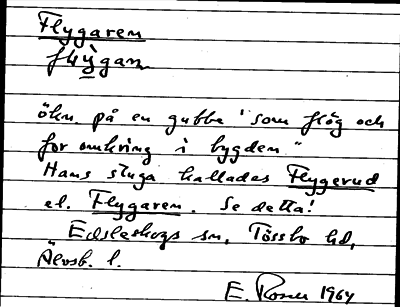 Flygaren
flỳgarn
ökn. på en gubbe "som flög och
for omkring i bygden"
Hans stuga kallades Flygerud
el. Flygaren. Se detta!
Edsleskogs sn, Tössbo hd,
Älvsb. l.
E. Rosner 1964